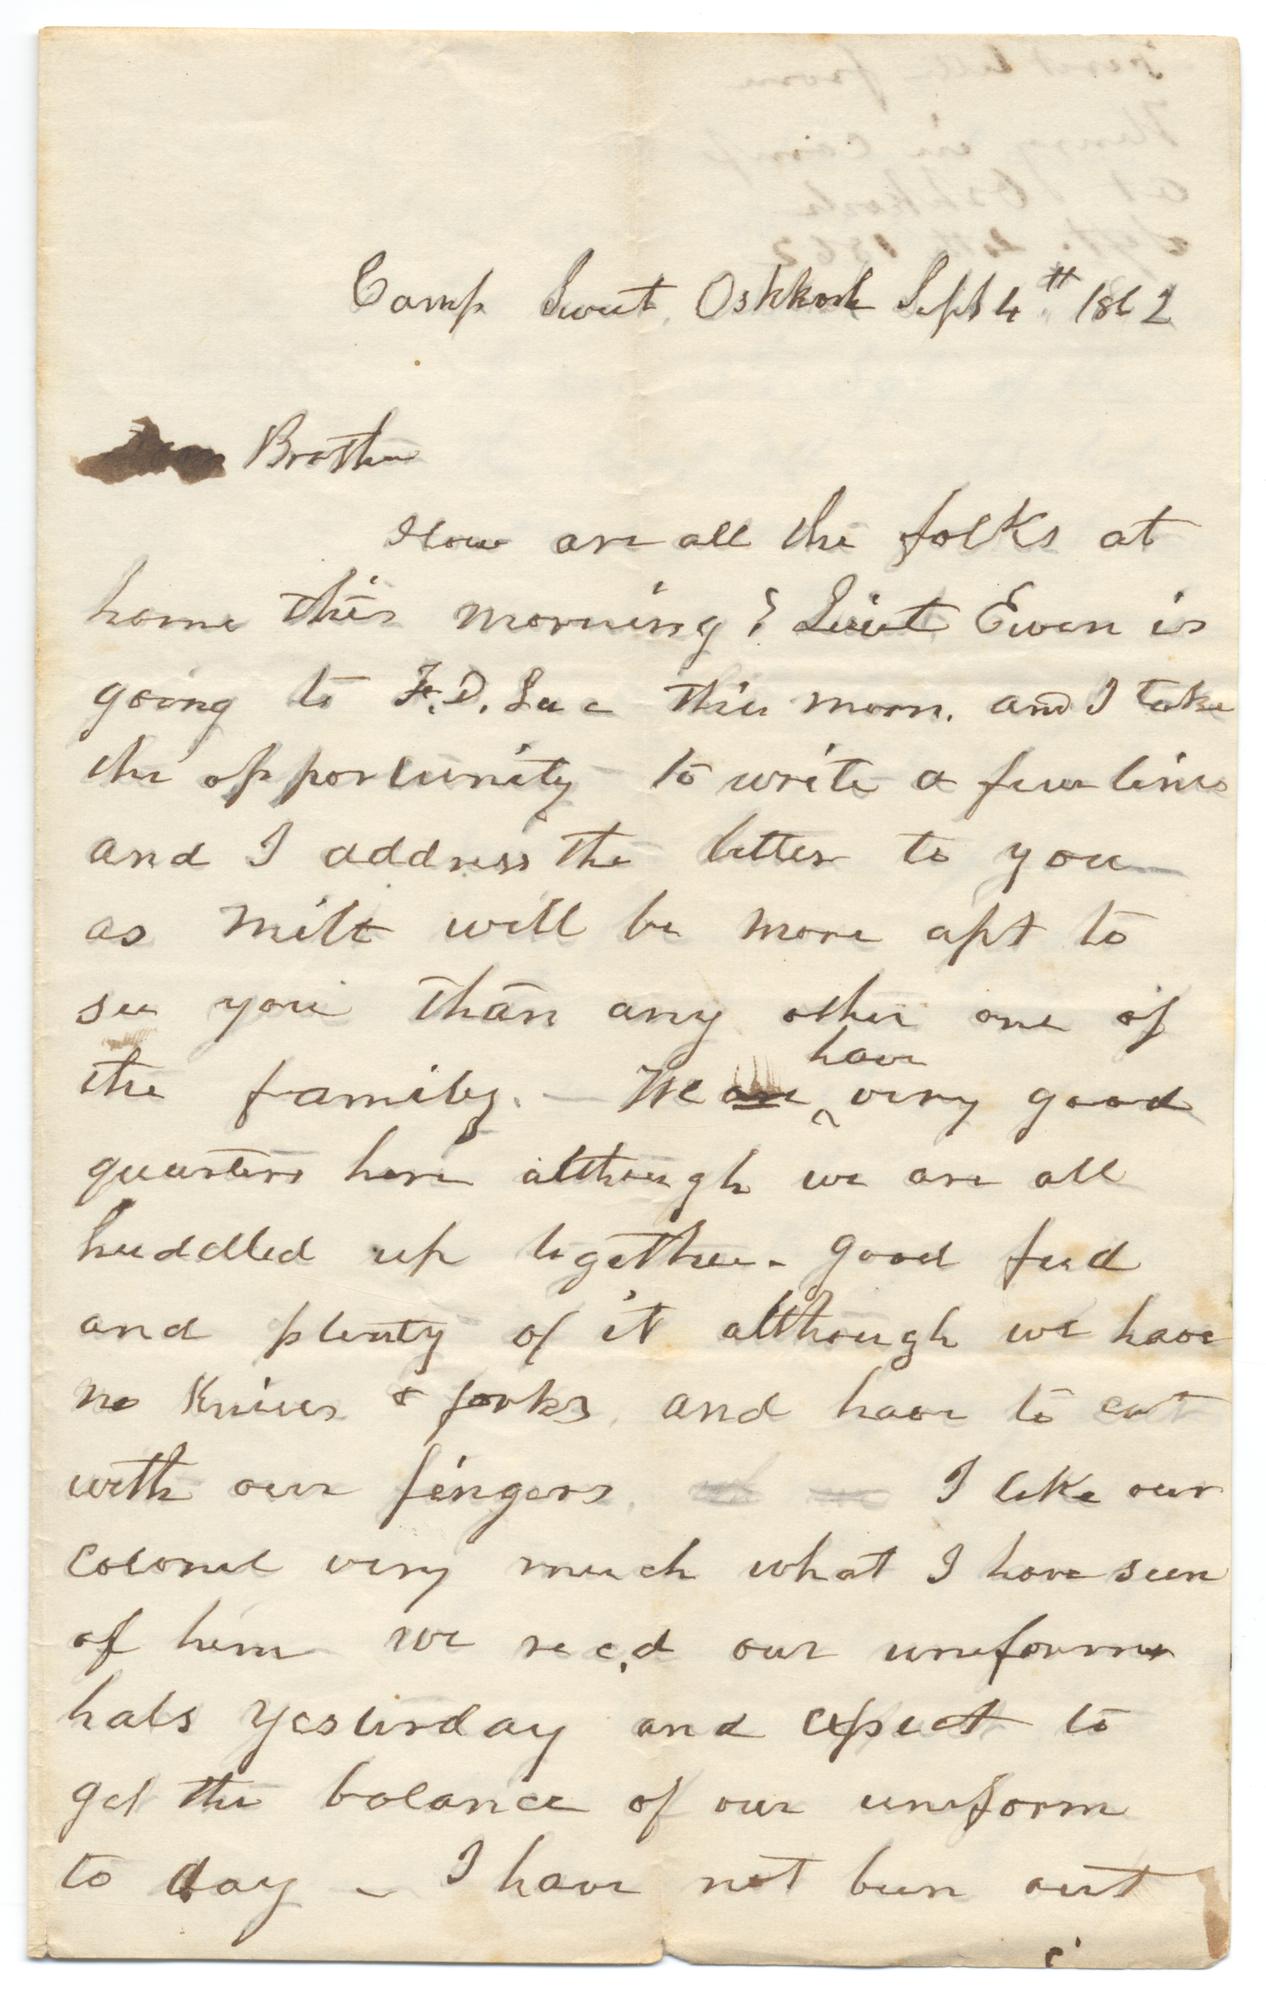 Camp Sweet, Oshkosh Sept 4th 1862
Brother
How are all the folks at
home this morning? Lieut Ewen is
going to F.D. Lac this morn. and I take
the opportunity to write a few lines
and I address the letter to you
as Milt will be more apt to
see you than any other one of
the family. — We are have very good
quarters here although we are all
huddled up together. good feed
and plenty of it although we have
no Knives & forks, and have to eat
with our fingers. I like our
colonel very much what I have seen
of him we rec,d our uniform
hats yesterday and expect to
get the balance of our uniform
to day – I have not been out